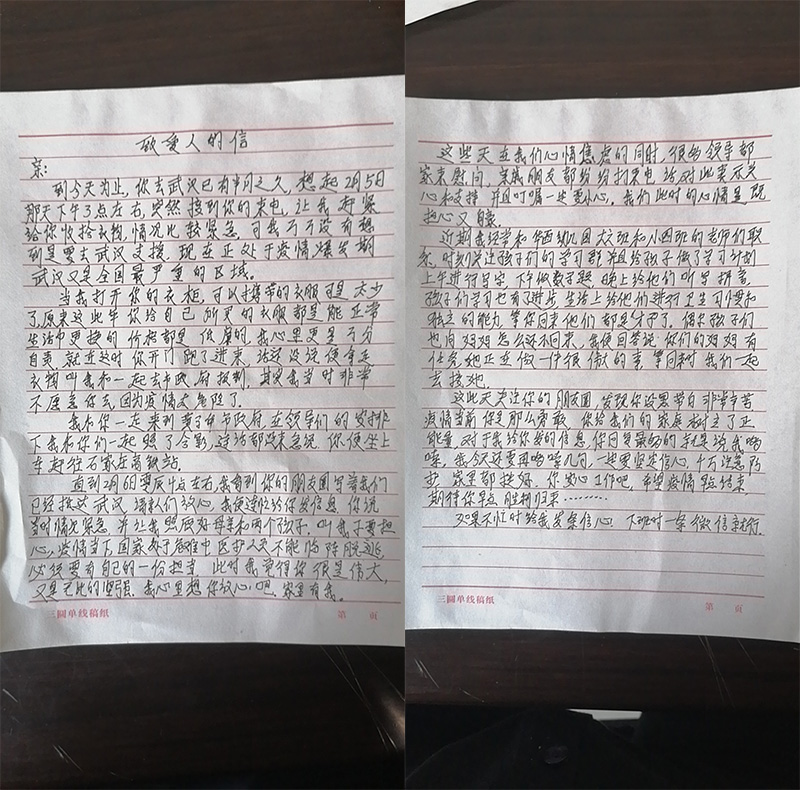 敬爱人的信
亲:
到今天为止,你去武汉已有半月之久,想起2月5日
那天下午3点左右,突然接到你的来电,让我赶紧
给你收拾衣物,情况比较紧急,可我万万没有想
到是要去武汉支援,现在正处于疫情爆发期
武汉又是全国最严重的区域。
当我打开你的衣柜,可以携带的衣服可是太少
了,原来这些年你给自己所买的衣服都是能正常
生活中更换的价格都是低廉的,我心里更是万分
自责,就在这时你开门跑了进来,话没说便拿走
衣物叫我和一起去市政府报到,其实我当时非常
不愿意你去,因为疫情太危险了。
我和你一起来到晋中市政府,在领导们的安排
下我和你们一起照了合影,连话都没来急说,你便坐上
车赶往石家庄高铁站。
直到2月6凌辰1点左右,我看到你的朋友圈写着我们
已经抵达武汉,请家人们放心,我便连忙给你发信息,你说
当时情况紧急,并让我照顾好母亲和两个孩子,叫我不要担
心,疫情当下国家处于危难中医护人员不能临阵脱逃,
必须要有自己的一份担当,此时我觉得你很是伟大,
又是无比的坚强,我心里想你放心吧,家里有我。
三圆单线稿纸 第 页
这些天在我们心情焦虑的同时,很多领导都
家来慰问,亲戚朋友都纷纷打来电话对此表示关
心和支持,并且叮嘱一定要小心。我们此时的心情是既
担心又自豪。
近期我经常和华西幼儿园大六班和小四班的老师们联
系,时刻关注孩子们的学习群并且给孩子做了学习计划
上午进行写字,下午做数学题,晚上给他们听写拼音,
孩子们学习也有了进步,生活上给他们进行卫生习惯和
独立的能力,等你回来他们都是才子了。偶尔孩子们
也问妈妈怎么还不回来,我便回答说:你们的妈妈有
任务她正在做一件很伟大的事,等回来时我们一起
去接她。
这些天关注你的朋友圈,发现你没黑带白非常辛苦
疫情当前你是那么勇敢,你给我们的家庭树立了正
能量,对于我给你发的信息,你回复最多的就是说我唠
嗦,我今天还要再唠嗦几句,一定要坚定信心,千万注意防
护,家里都挺好,你安心工作吧,希望疫情早点结束,
期待你早点胜利归来………
只是不忙时给我发条信息,下班时一条微信就行。
三圆单线稿纸 第 页